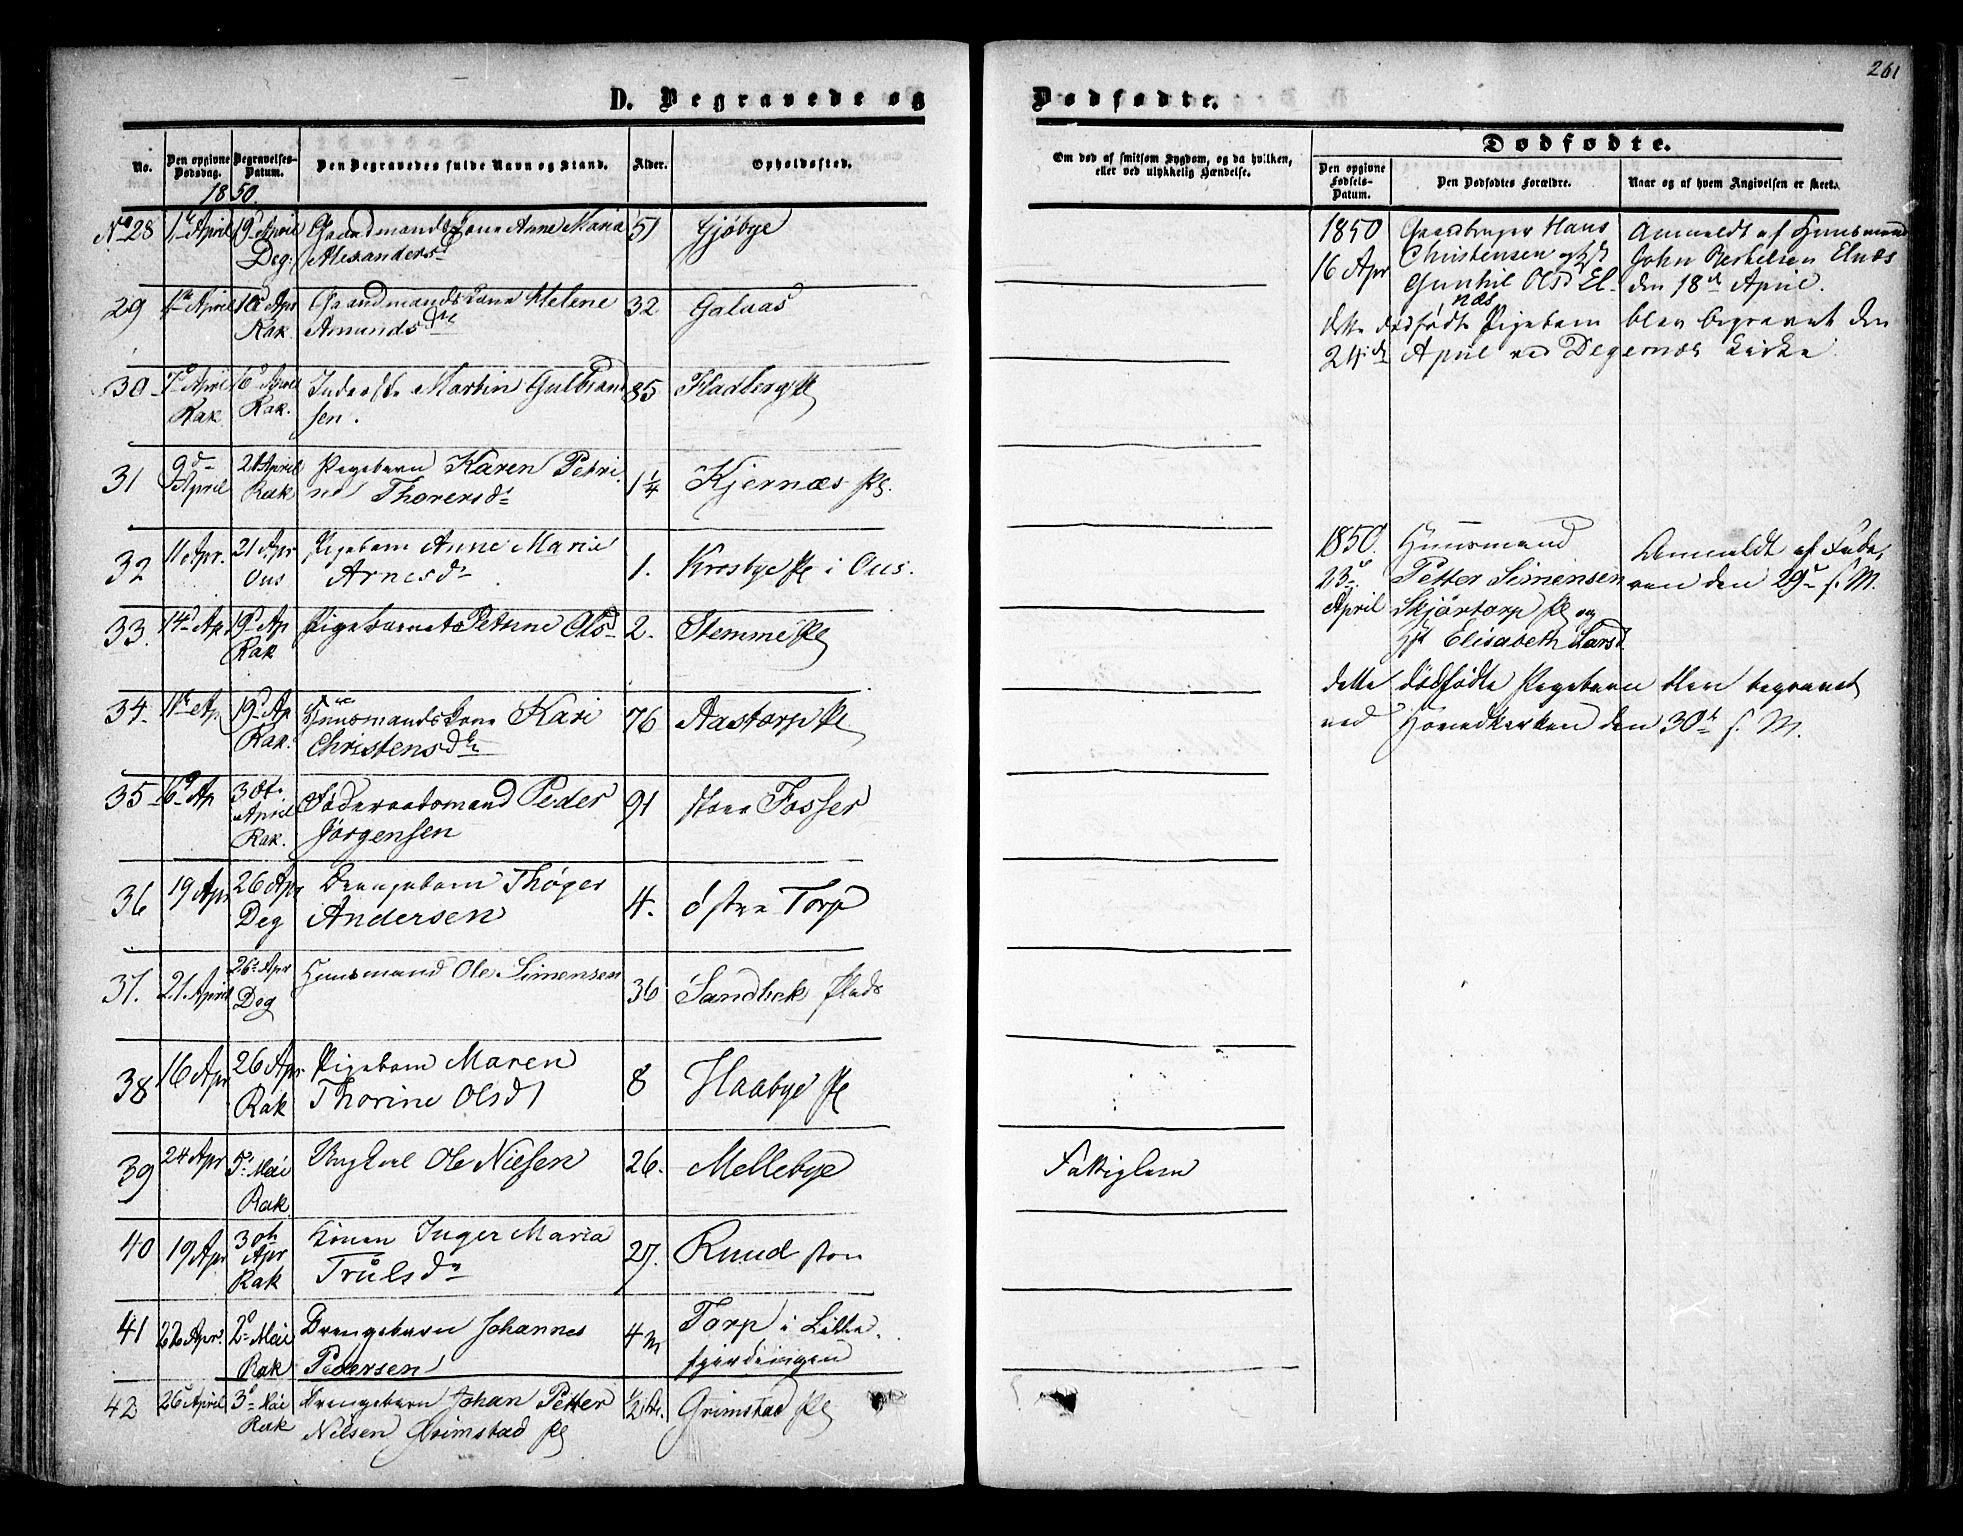 261
D. Begravede og Dødfødte.
No.
Den opgivne Dødsdag.
Begravelses-Datum.
Den Begravedes fulde Navn og Stand.
Alder.
Opholdssted.
Om død af smitsom Sygdom, og da hvilken,
eller ved ulykkelig Hændelse.
Dødfødte.
Den opgivne Fødsels-Datum.
Den Dødfødtes Forældre.
Naar og af hvem Angivelsen er skeet.
1850.
No 28 April 19 April Gaardmandskone Anne Maria 51 Gjøbye
Deg: Alexandersd
29 April 10 Apr Gaardmandskone Helene 32
Rak Amundsd
30 7 April April Martin Gulbrand 85 Fladberg Pl
Rak Rak. sen.
31 9d 21 April Pigebarn Karen Petri 1 1/4 Kjernæs Pl.
April Rak ne Thorersd
32 11 Apr. 21 Apr Pigebarn Anne Marie 1. Krosbye Pl i Ous.
Ous Arnesd
33. 14 Ap 19 Ap Pigebarnet Petrine Olsd 2. Stemme Pl
Rak
34. Ap 19 Ap Huusmandskone Kari 76 Aastorp Pl
Rak. Christensd
35 Ap 30t Føderaadsmand Peder 91 store Fosser
April Jørgensen
Rak.
36 19 Apr 26 Apr Drengebarn Thøger 4. østre Torp
Deg Andersen
37. 21. April 26 Apr Huusmand Ole Simensen 36 Sandbek Plads
Deg
38 16 Apr 26 Apr Pigebarn Maren 8 Haabye Pl
Rak Thorine Olsd
39 24 Apr 5 Mai Ungkarl Ole Nielsen 26. Mellebye
Rak
40 19 Apr 30th Konen Inger Maria 27. Ruud
Apr Trulsd
Rak
41 22 Apr. 2 Mai Drengebarn Johannes 4 M Torp i Lille
Rak Pedersen fjerdingen
42 26 April 3 Mai Drengebarn Johan Petter 1/2 Grimstad Pl
Rak Nilsen Grimstad Pl
Fattiglem
1850 Gaardbruger Hans Anmeldt af Huusmand
16 Apr Christensen og John Berthelsen Elnæs
Gunhil Olsd El- den 18d April.
næs
dette dødfødte Pigebarn blev begravet den
24de April ved Degernæs Kirke
1850. Huusmand Anmeldt af Fade,
23 Petter Simensen ren den 29 s. M.
April Skjørtorp Pl og
Elisabeth Larsd
dette dødfødte Pigebarn blev begravet
ved Hovedkirken den 30t s. M.